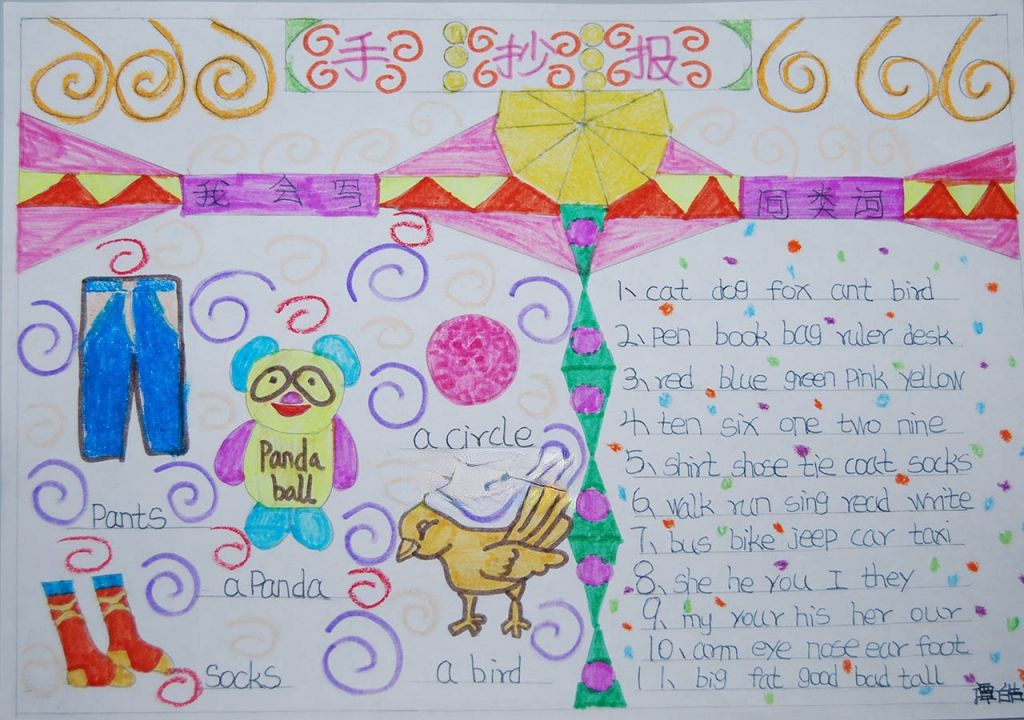 手抄报
我会写
同类词
Pants
Panda
ball
a circle
a Panda
socks
a bird
1、cat dog fox ant bird
2、pen book bag ruler desk
3、red blue green Pink yellow
4、ten six one two nine
5、shirt shose tie coat socks
6、walk run sing read write
7、bus bike jeep car taxi
8、she he you I they
9、my your his her our
10、arm eye nose ear foot
11、big fat good bad tall
覃皓